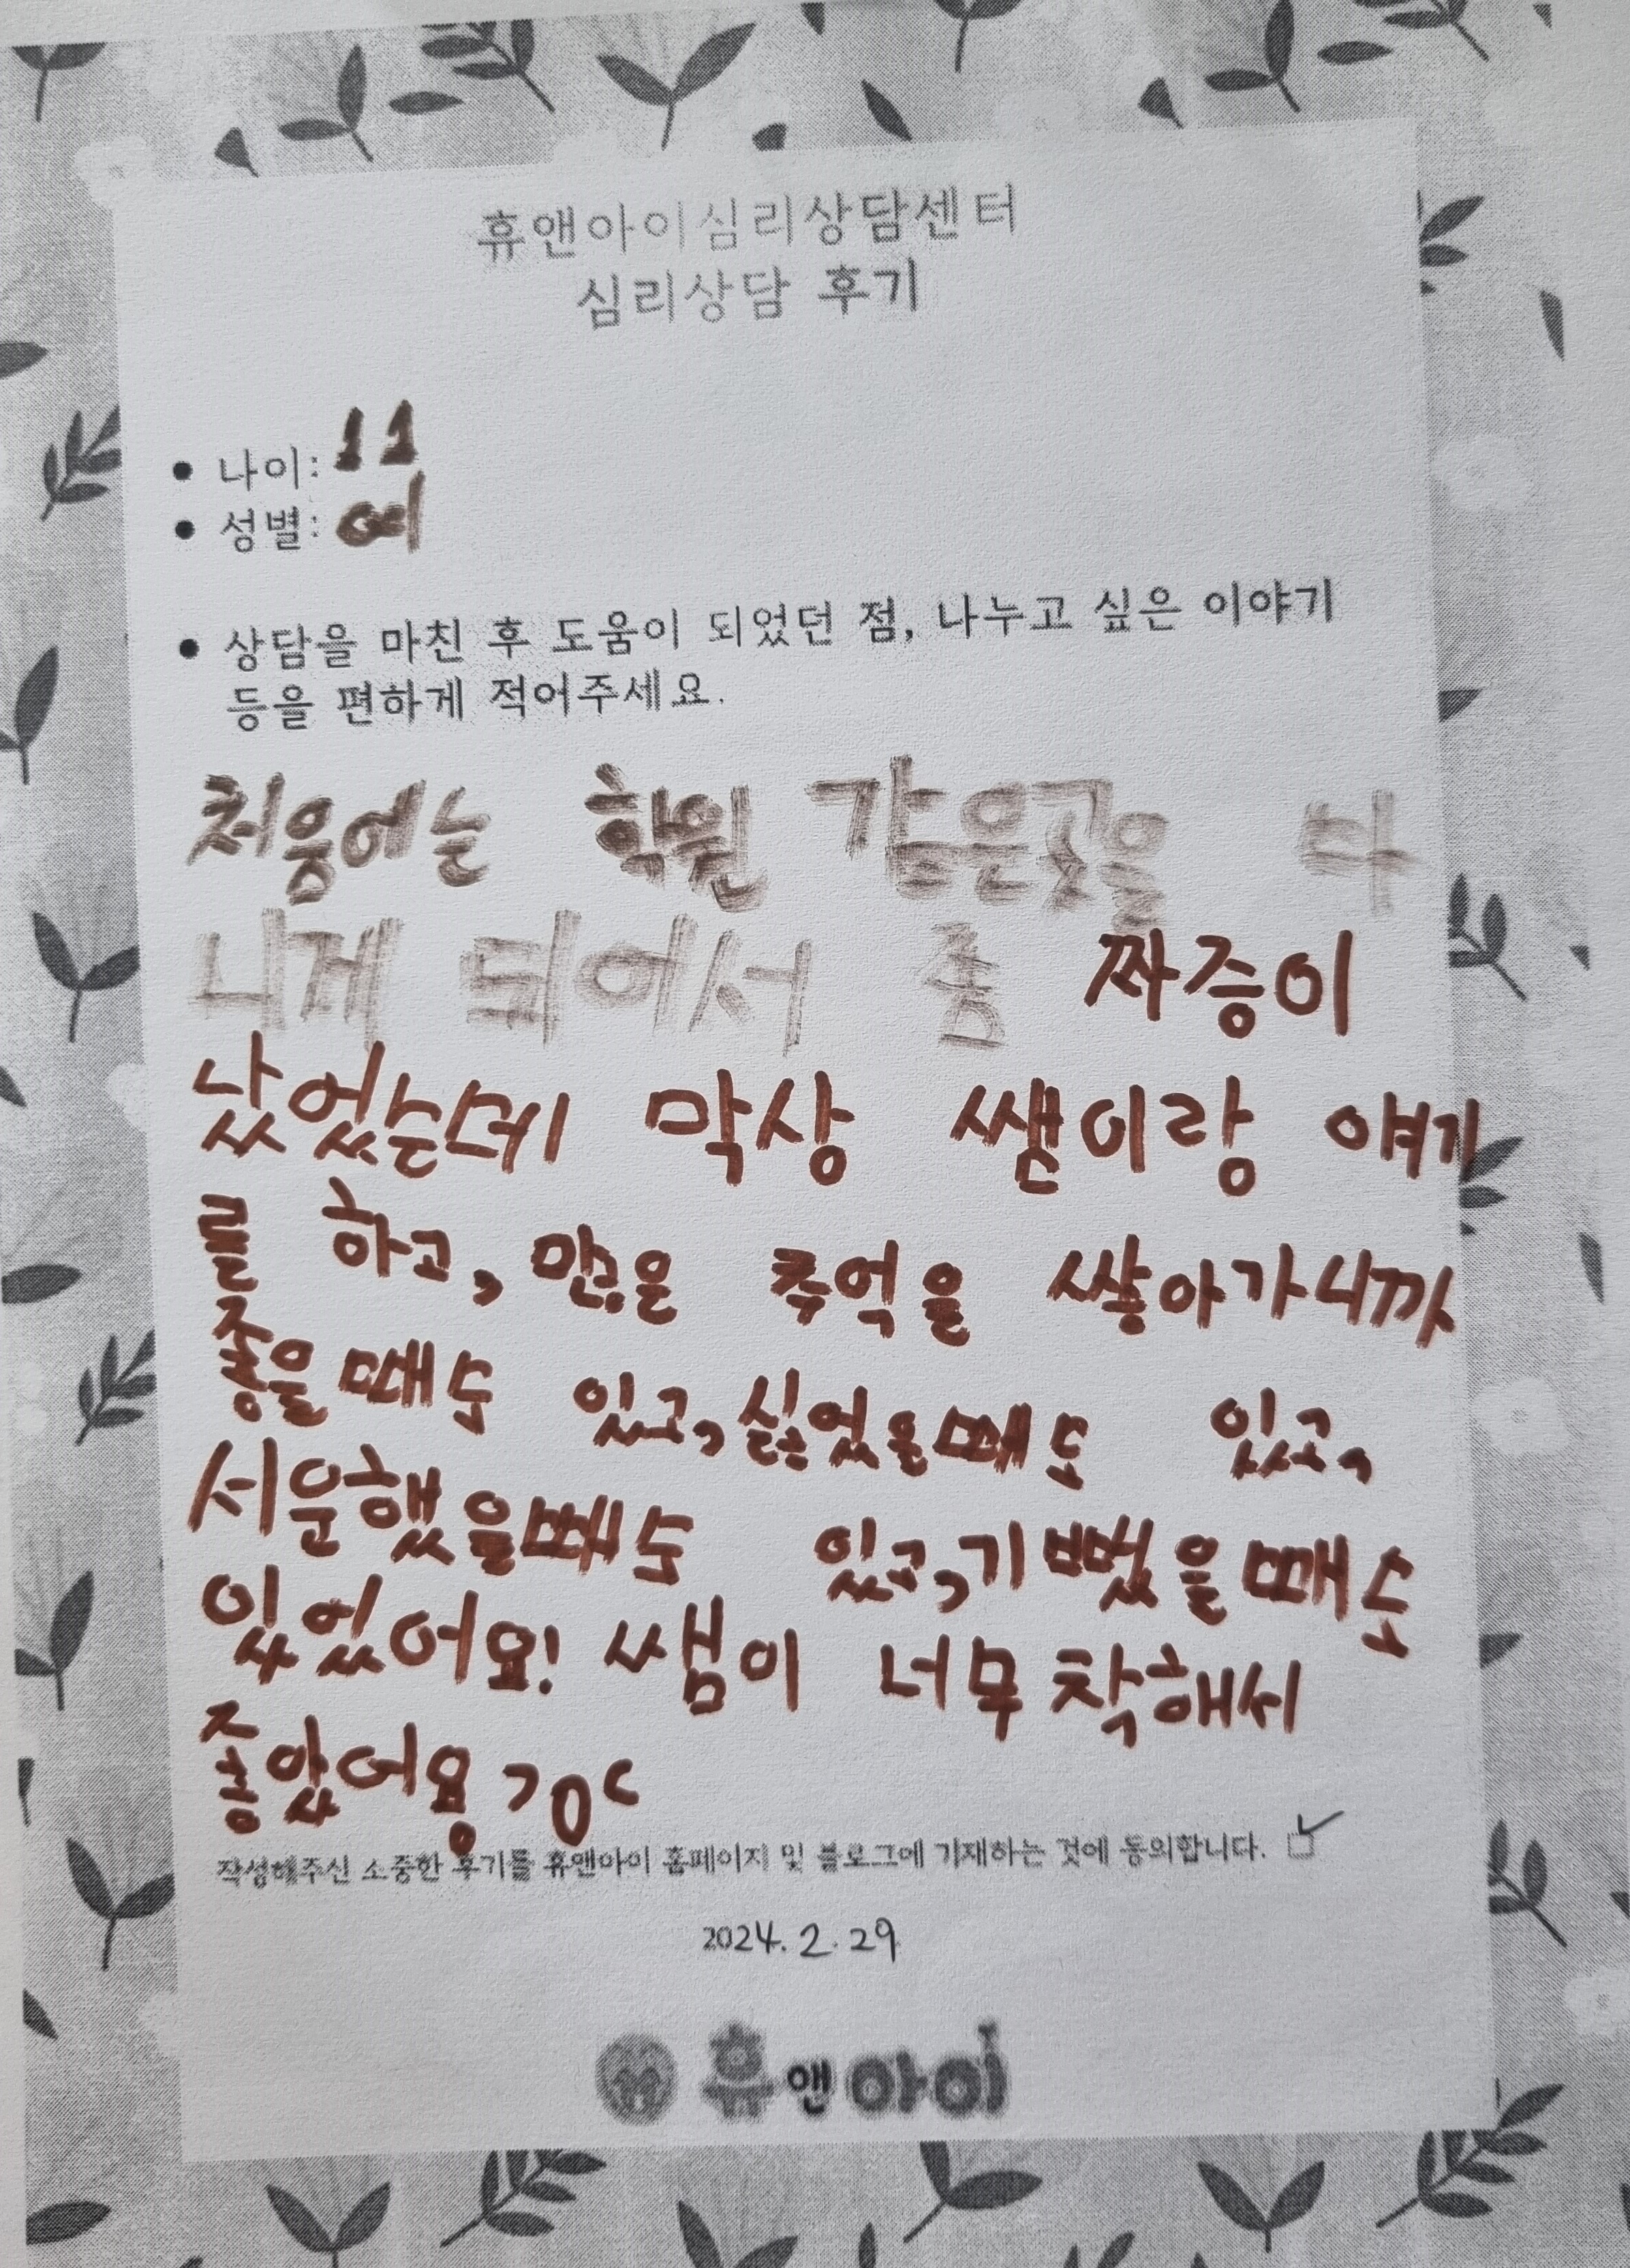 휴앤아이심리상담센터
심리상담 후기
• 나이: 11
• 성별: 여
• 상담을 마친 후 도움이 되었던 점, 나누고 싶은 이야기
등을 편하게 적어주세요.
처음에는 학원 같은곳을 다
니게 되어서 좀 짜증이
났었는데 막상 쌤이랑 얘기
를 하고, 많은 추억을 쌓아가니까
좋을때도 있고, 싫었을때도 있고,
서운했을때도 있고, 기뻤을때도
있었어요! 쌤이 너무 착해서
좋았어용 >0<
작성해주신 소중한 후기를 휴앤아이 홈페이지 및 블로그에 기재하는 것에 동의합니다. ☑
2024. 2. 29
휴앤아이